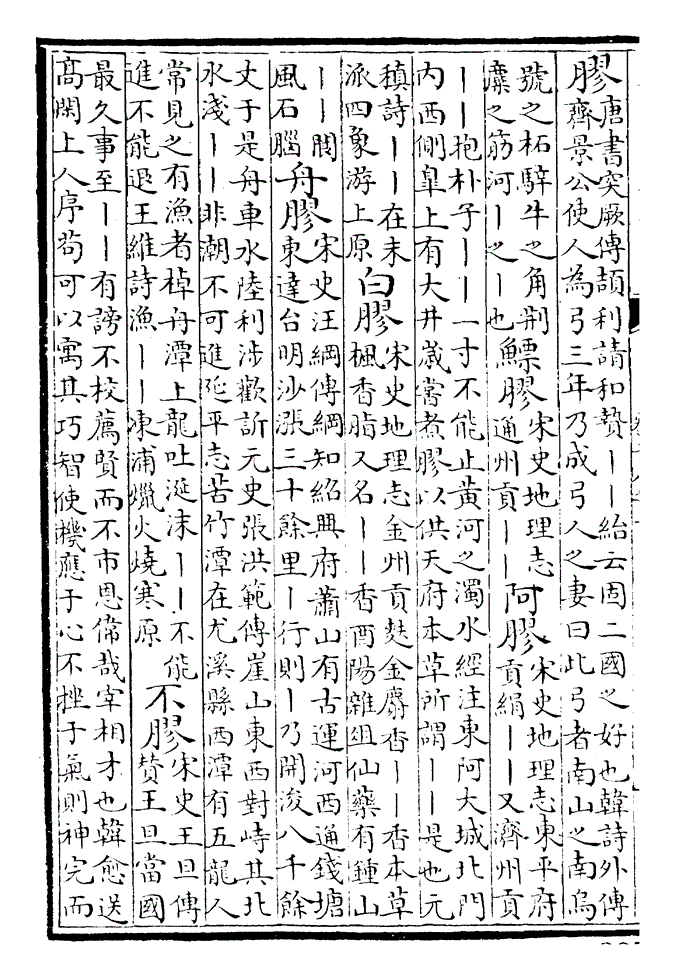 膠唐書突厥傳頡利請和贄丨丨紿云固二國之好也韓詩外傳
齊景公使人為弓三年乃成弓人之妻曰此弓者南山之南烏
號之柘騂牛之角荆
麋之筋河丨之丨也
鰾膠
宋史地理志
通州貢丨丨
阿膠
宋史地理志東平府
貢絹丨丨又濟州貢
丨丨抱朴子丨丨一寸不能止黃河之濁水經注東阿大城北門
內西側臯上有大井歲嘗煮膠以供天府本草所謂丨丨是也元
稹詩丨丨在末
派四象游上原
白膠
宋史地理志金州貢麩金麝香丨丨香本草
楓香脂又名丨丨香酉陽雜俎仙藥有鍾山
丨丨閬
風石腦
舟膠
宋史汪綱傳綱知紹興府蕭山有古運河西通錢塘
東達台明沙漲三十餘里丨行則丨乃開浚八千餘
丈于是舟車水陸利涉歡訢元史張洪範傳崖山東西對峙其北
水淺丨丨非潮不可進延平志苦竹潭在尤溪縣西潭有五龍人
常見之有漁者棹舟潭上龍吐涎沫丨丨不能
進不能退王維詩漁丨丨凍浦爥火燒寒原
不膠
宋史王旦傳
贊王旦當國
最久事至丨丨有謗不校薦賢而不市恩偉哉宰相才也韓愈送
高閑上人序苟可以寓其巧智使機應于心不挫于氣則神完而